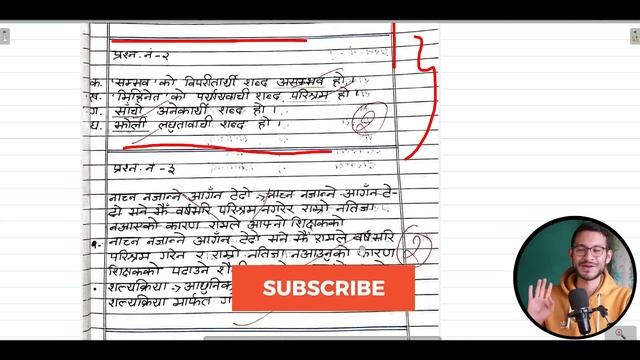 प्रश्न नं-२
क. 'सम्भव' को विपरीतार्थी शब्द असम्भव हो ।
ख. 'मिहिनेत' को पर्यायवाची शब्द परिश्रम हो ।
ग. साँचो अनेकार्थी शब्द हो ।
घ. झोली लघुतावाची शब्द हो ।
2
प्रश्न नं-३
नाच्न नजान्ने आगँन टेढो → नाच्न नजान्ने आगँन टे-
ढो भने झैँ वर्षभरि परिश्रम नगरेर राम्रो नतिजा
नआएको कारण रामले आफ्नो शिक्षकको
१. नाच्न नजान्ने आगँन टेढो भने झैँ रामले वर्षभरि
परिश्रम गरेन र राम्रो नतिजा नआउनुको कारण
शिक्षकको पढाउने
2
शल्यक्रिया → आधुनिक
शल्यक्रिया मार्फत
SUBSCRIBE